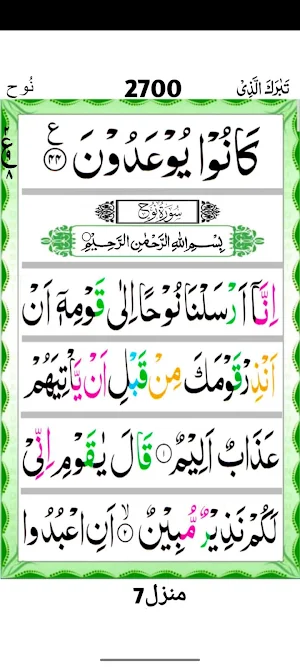 نُوح 2700 تَبٰرَكَ الَّذِىْ
كَانُوْا يُوْعَدُوْنَ ۟ع ۴۴
سُوْرَةُ نُوْحٍ
بِسْمِ اللّٰهِ الرَّحْمٰنِ الرَّحِيْمِ
اِنَّاۤ اَرْسَلْنَا نُوْحًا اِلٰى قَوْمِهٖۤ اَنْ
اَنْذِرْ قَوْمَكَ مِنْ قَبْلِ اَنْ يَّاْتِيَهُمْ
عَذَابٌ اَلِيْمٌ ۱ قَالَ يٰقَوْمِ اِنِّىْ
لَكُمْ نَذِيْرٌ مُّبِيْنٌ ۙ۲ اَنِ اعْبُدُوا
منزل7